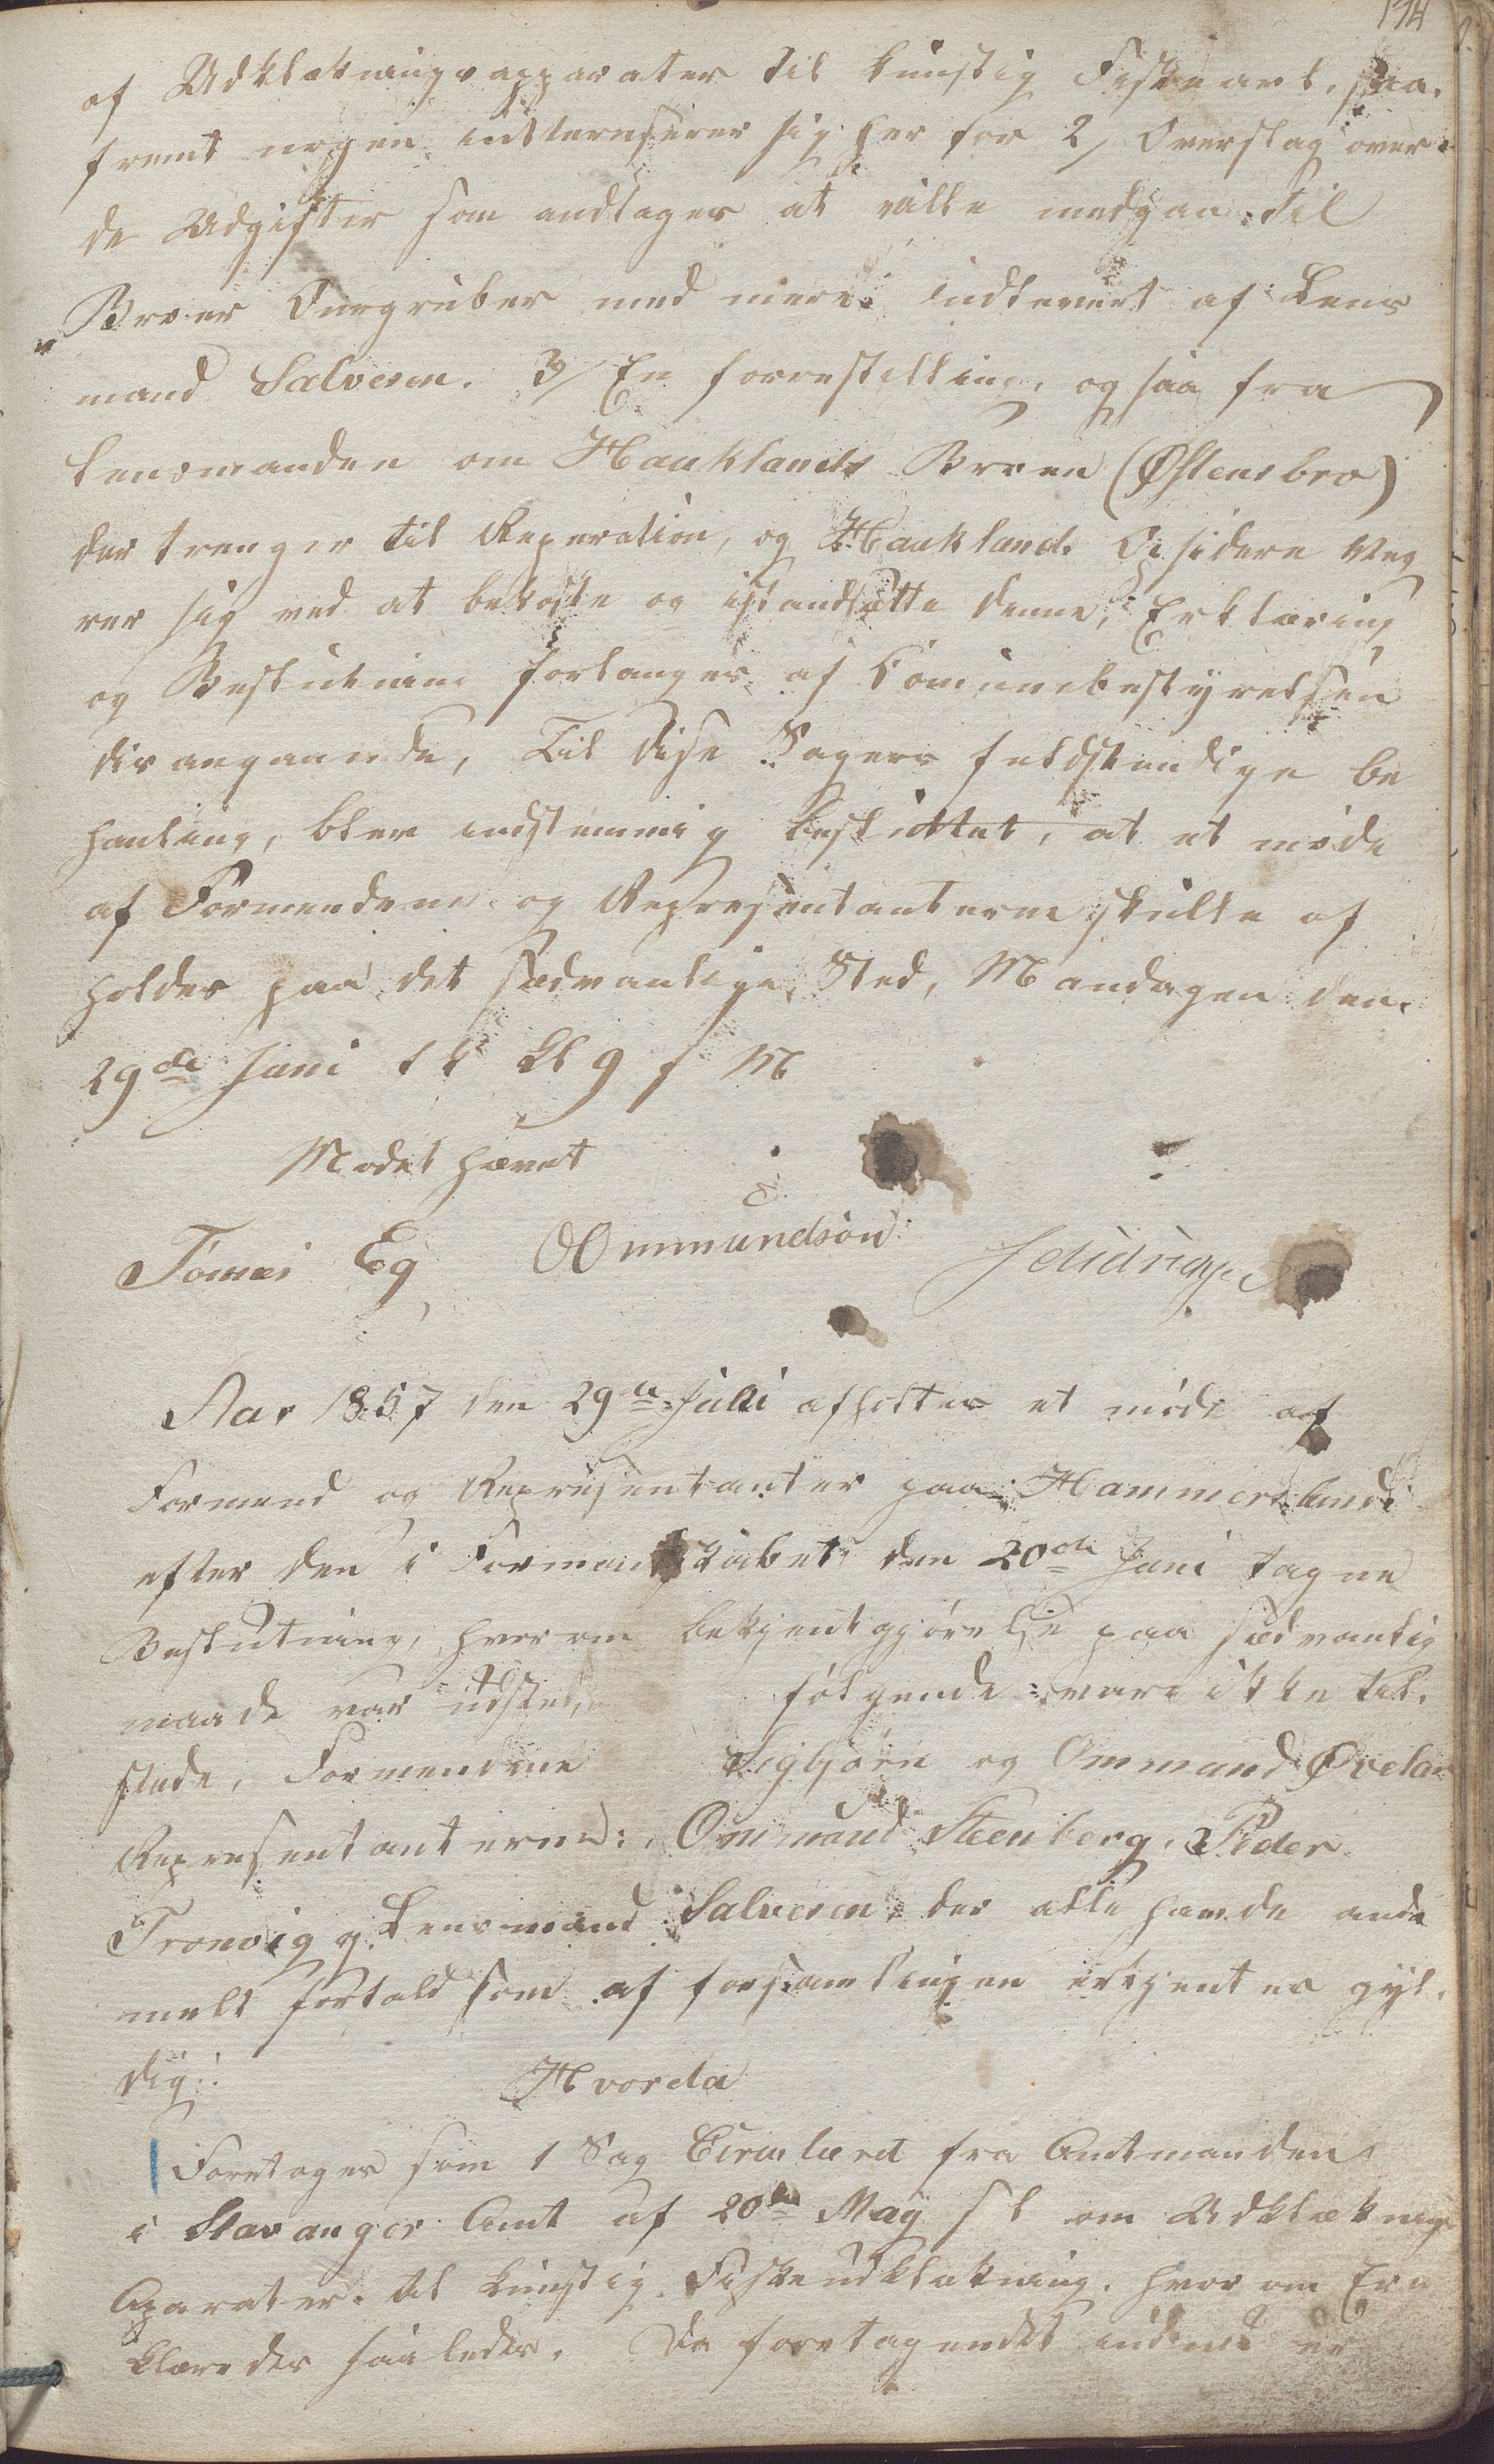 174
af Udklækningsapparater til kunstig Fiskeavl, saa-
fremt nogen intterserer sig her for 2/ Overslag over
de Udgifter som andtages at ville medgaa til
Broer Durgruber med mere indleveret af Lens
mand Salvesen. 3/ En forrestilling, ogsaa fra
lensmanden om Hauklands Broen (Østensbro)
der trenger til Reperation, og Hauklands Opsidere veg
rer sig ved at bekoste og istandsætte denne, Erklæring
og Beslutning forlanges af Komunebestyrelsen
desangaaende, Til disse Sagers fuldstendige be
hanling, blev endstemmig besluttet, at et møde
af Formendene og Representanterne skulle af
holdes paa det sædvanlige Sted, Mandagen den
29de Juni Kl 9 f M
Mødet hævet
Tomas Eg OOmmundsen
Aar 1857 den 29de Juli afholtes et møde af
Formend og Representanter paa Hammersland
efter den i Formandskabet den 20de Juni tagne
Beslutning, hvorom bekjentgjørelse paa sædvanlig
maade var udsted, følgende vare ikke til
stede, Formendene Sigbjørn og Ommund Øvelan
Representanterne: Ommund Steenberg, Peder
Tronvig og Lensmand Salvesen, der alle havde ande
melt forfald som af forsamlingen erkjentes gyl-
dig: Hvorda
Foretoges som 1 Sag Cirkulæret fra Amtmanden
i Stavanger Amt af 20de May s l om Udklæknings
Aparater til kunstig Fiskeudklækning, hvorom Er
klæredes saaledes. Da foretagendet endnu er